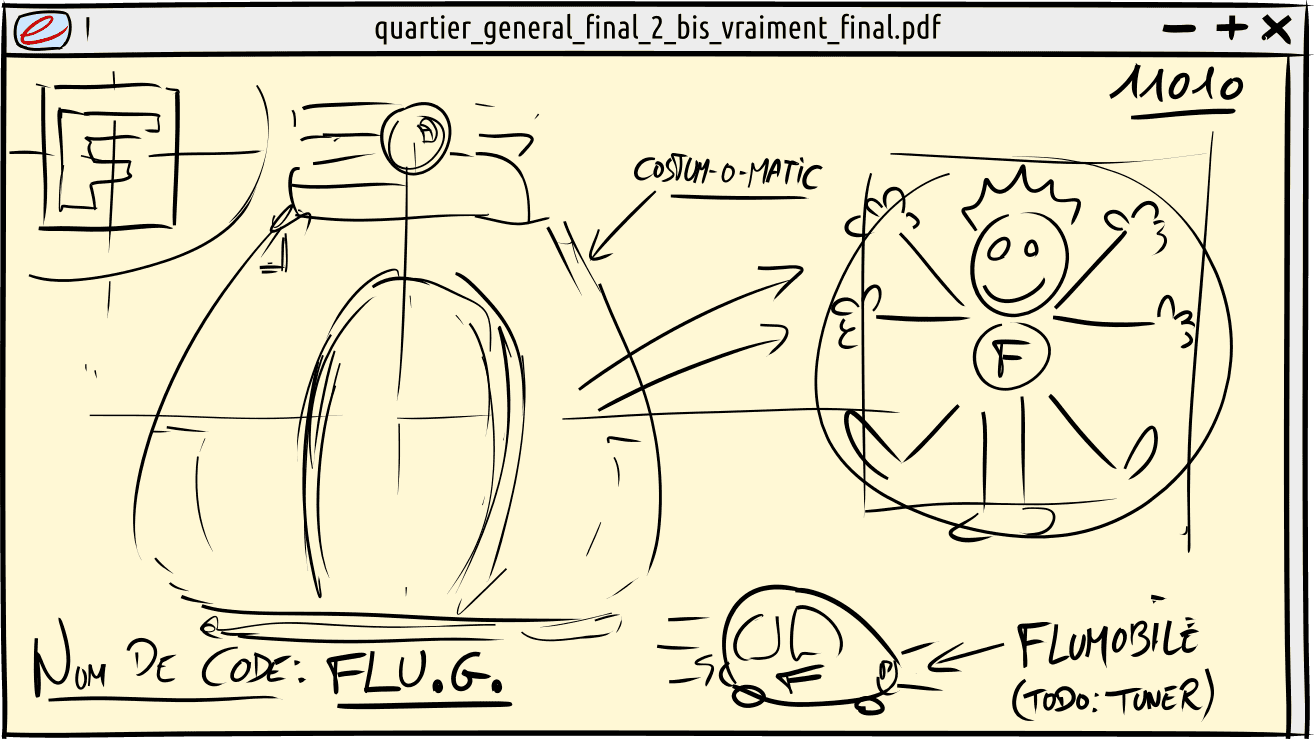 quartier_general_final_2_bis_vraiment_final.pdf
11010
F
COSTUM-O-MATIC
F
NOM DE CODE: FLU.G.
F
FLUMOBILE
(TODO: TUNER)